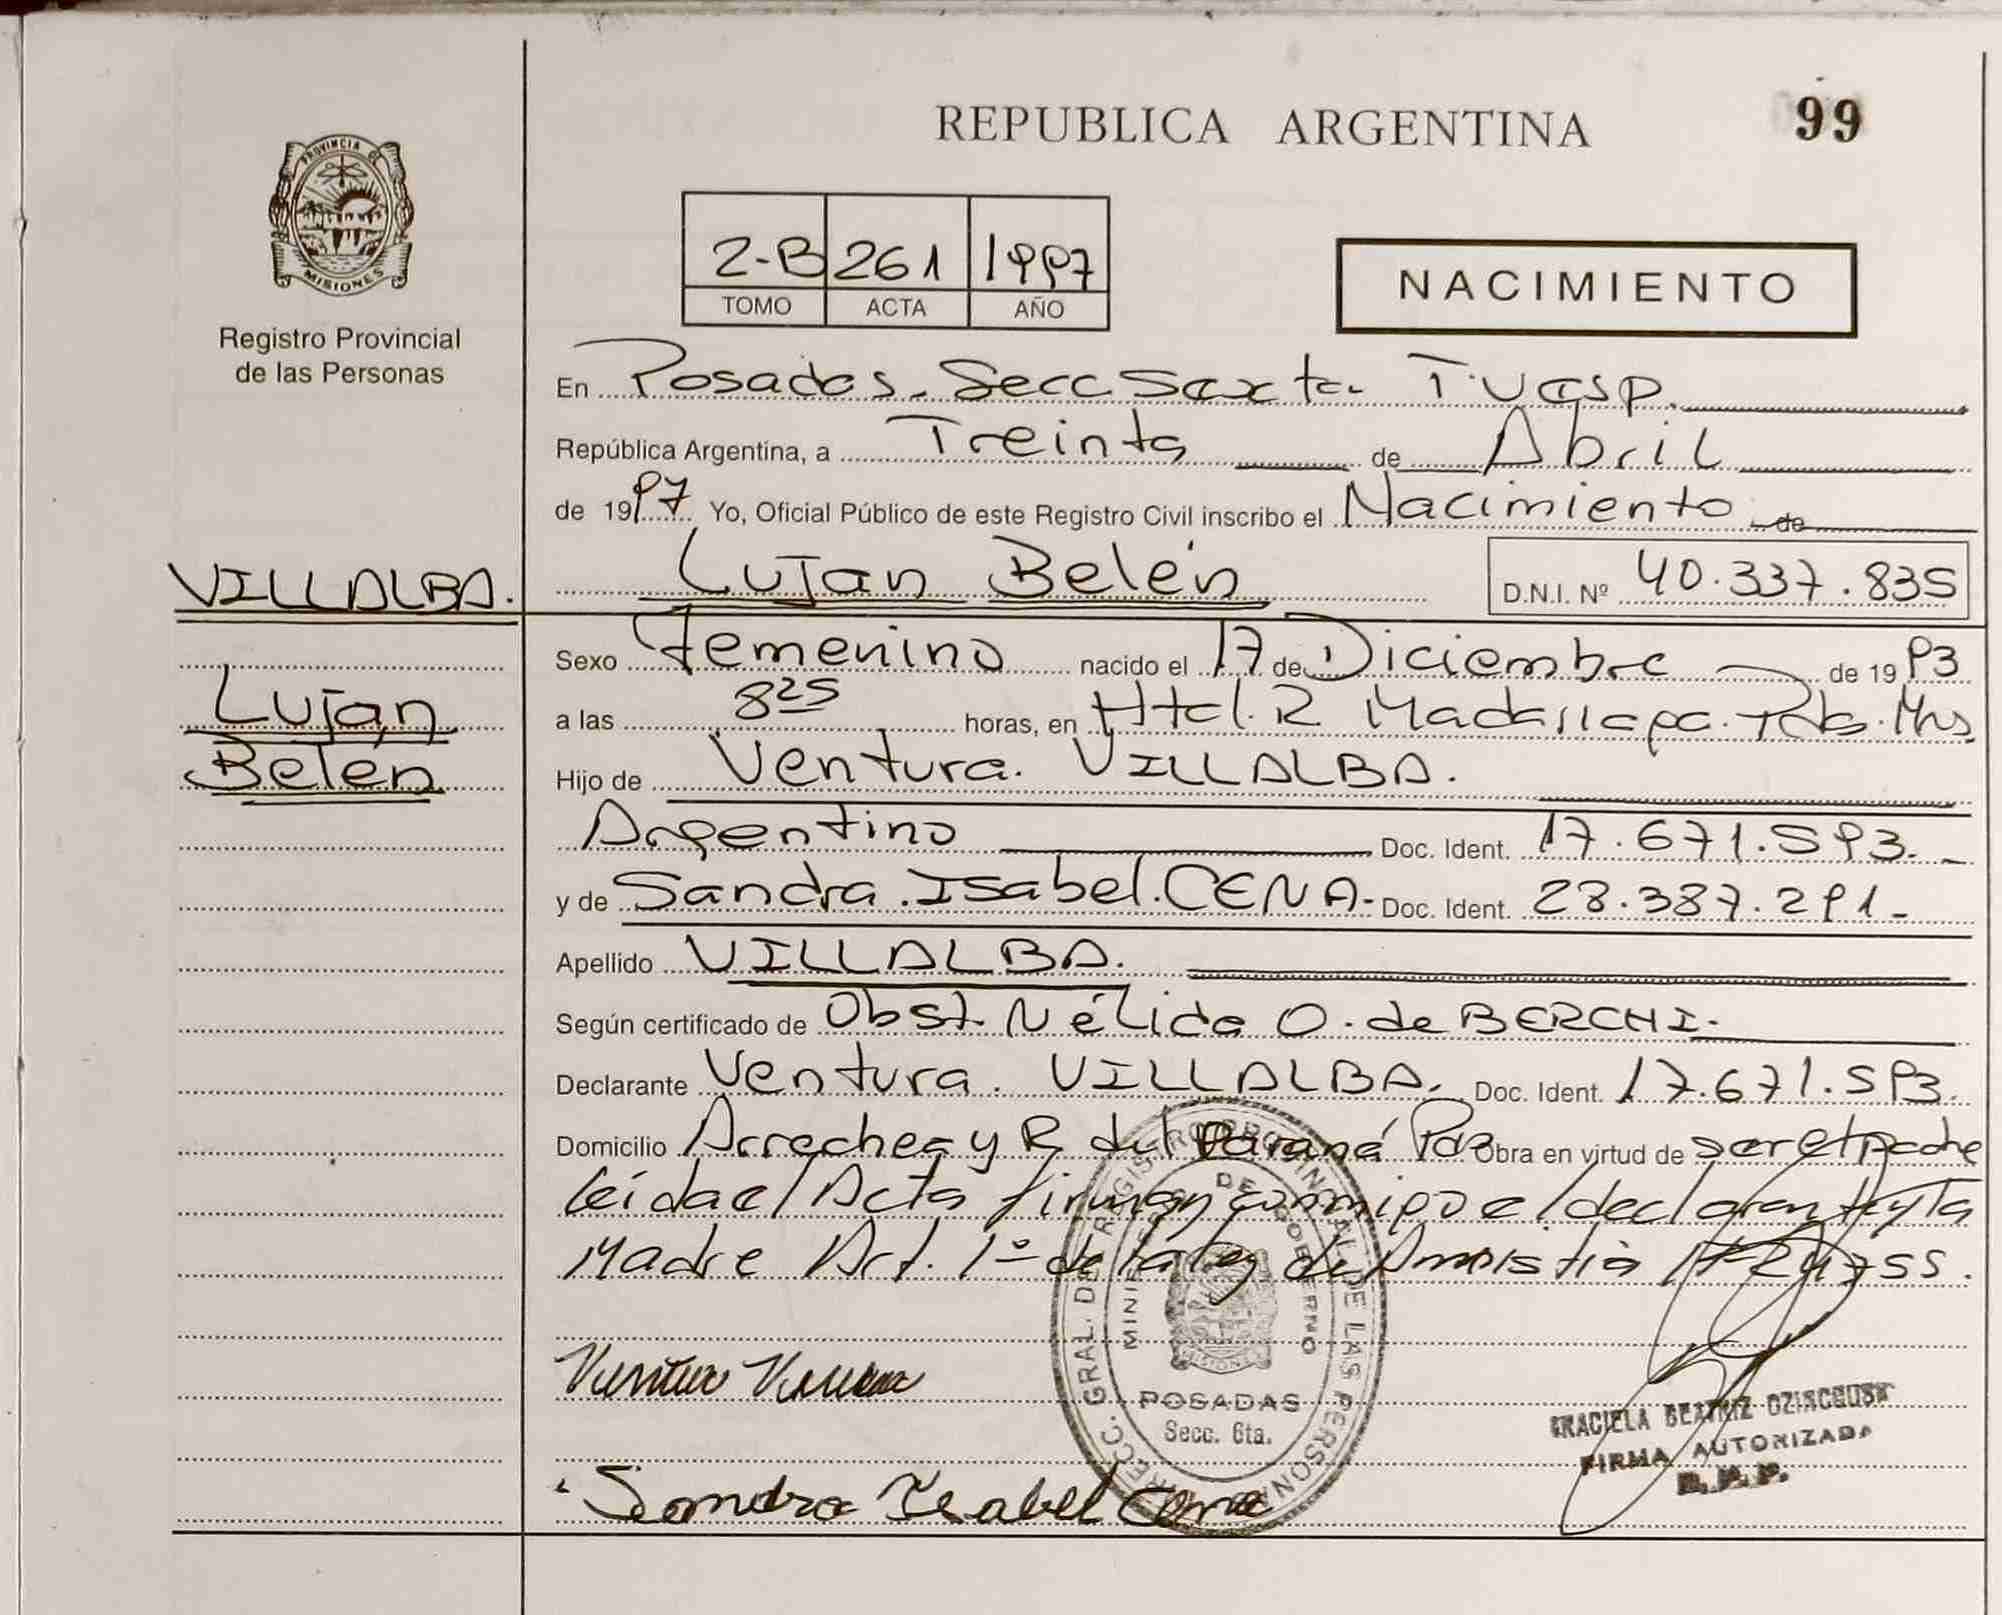 REPUBLICA ARGENTINA
99
PROVINCIA DE
MISIONES
Registro Provincial
de las Personas
2-B 261 1997
TOMO ACTA AÑO
NACIMIENTO
En Posadas. Secc Sexta
República Argentina, a Treinta de Abril
de 1997 Yo, Oficial Público de este Registro Civil inscribo el Nacimiento de
VILLALBA.
Lujan Belén D.N.I. Nº 40.337.835
Sexo Femenino nacido el 17 de Diciembre de 1993
Luján
Belén
a las 8 25 horas, en Htal. R Madariaga. Pdas. Mns
Hijo de Ventura. VILLALBA.
Argentino Doc. Ident. 17.671.593.
y de Sandra. Isabel. CENA. Doc. Ident. 28.387.291
Apellido VILLALBA.
Según certificado de Obst. Nélida O. de BERCHI.
Declarante Ventura. VILLALBA. Doc. Ident. 17.671.593
Domicilio Arrechea y R. del Paraná Pdas Obra en virtud de ser el padre
leída el Acta firman conmigo el declarante y la
Madre Art. 1º de la ley de Amnistia
Sandra Isabel Cena
DIRECC. GRAL. DE REGISTRO PROVINCIAL DE LAS PERSONAS
MINISTERIO DE GOBIERNO
MISIONES
POSADAS
Secc. 6ta.
GRACIELA BEATRIZ
FIRMA AUTORIZADA